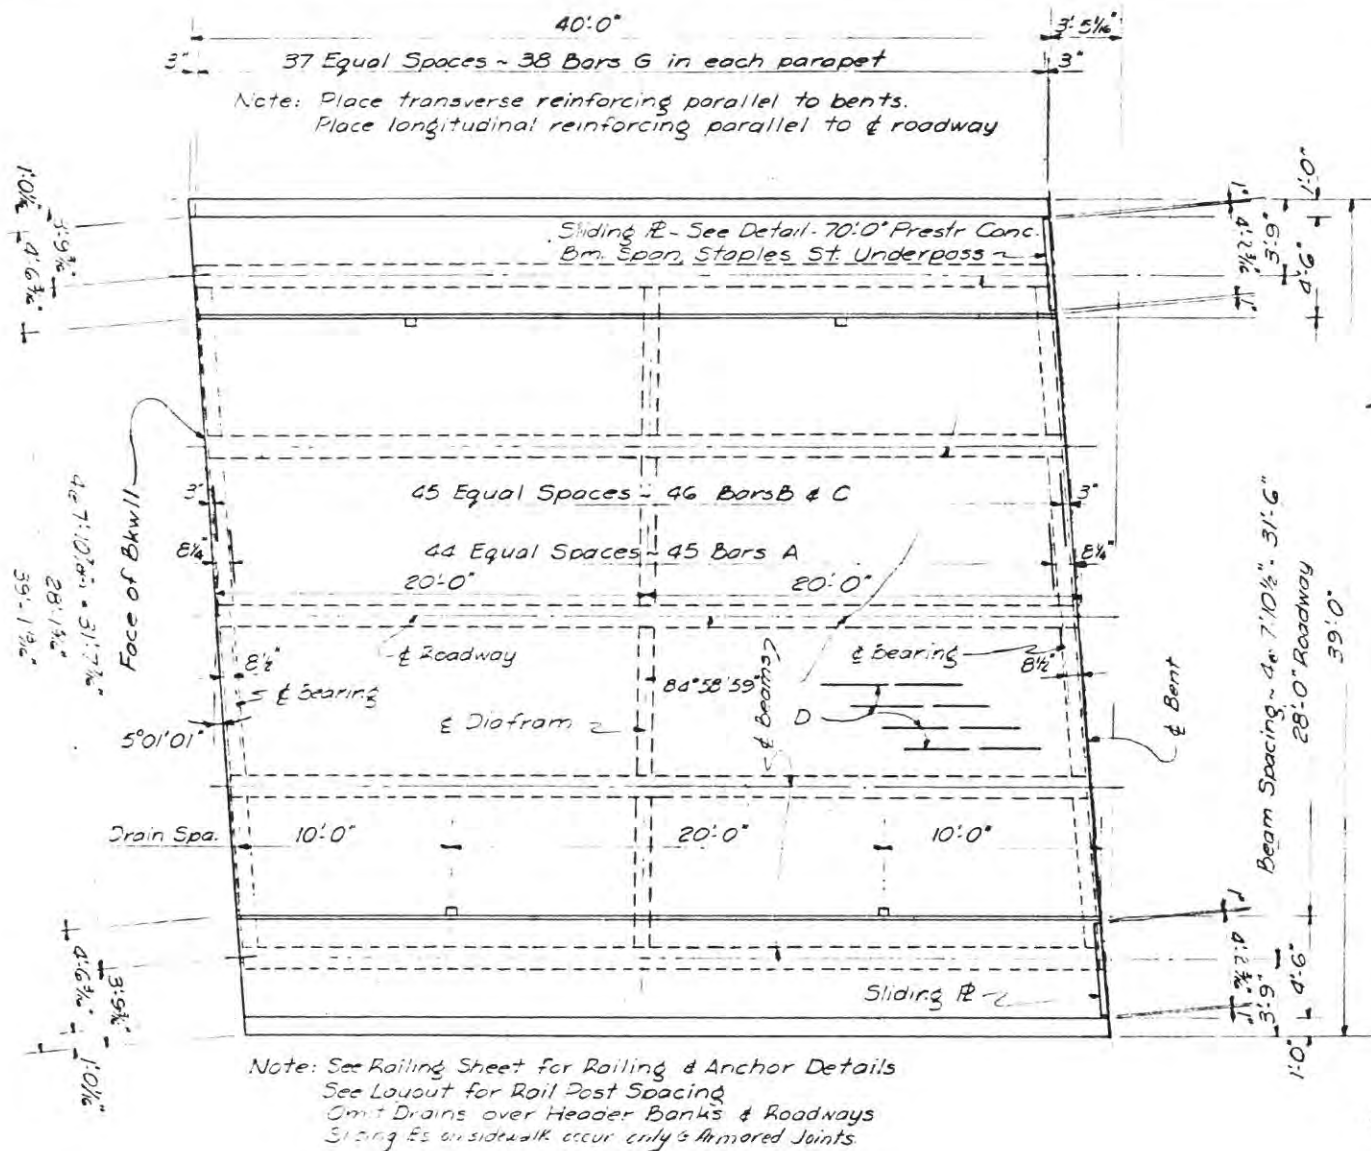 40'-0"
3'-5 1/16"
3"
37 Equal Spaces ~ 38 Bars G in each parapet
3"
Note: Place transverse reinforcing parallel to bents.
Place longitudinal reinforcing parallel to ℄ roadway
1'-0"
1"
4'-2 3/16"
3'-9"
4'-6"
1"
1'-0 1/16"
3'-9 3/16"
4'-6 3/16"
Sliding ℞ - See Detail - 70'-0" Prestr Conc.
Bm. Span, Staples St. Underpass
Face of Bkwll
3"
45 Equal Spaces ~ 46 Bars B & C
3"
8 1/4"
44 Equal Spaces ~ 45 Bars A
8 1/4"
20'-0"
20'-0"
28'-1 3/16"
39'-1 13/16"
℄ Roadway
℄ Bearing
8 1/2"
8 1/2"
℄ Bearing
84°58'59"
℄ Beams
D
℄ Diafram
5°01'01"
℄ Bent
Beam Spacing ~ 4 @ 7'-10 1/2" = 31'-6"
28'-0" Roadway
39'-0"
Drain Spa.
10'-0"
20'-0"
10'-0"
4'-6 3/16"
3'-9 3/16"
1'-0 1/16"
1"
4'-2 3/16"
1"
3'-9"
4'-6"
1'-0"
Sliding ℞
Note: See Railing Sheet for Railing & Anchor Details
See Layout for Rail Post Spacing
Omit Drains over Header Banks & Roadways
on sidewalk occur only @ Armored Joints